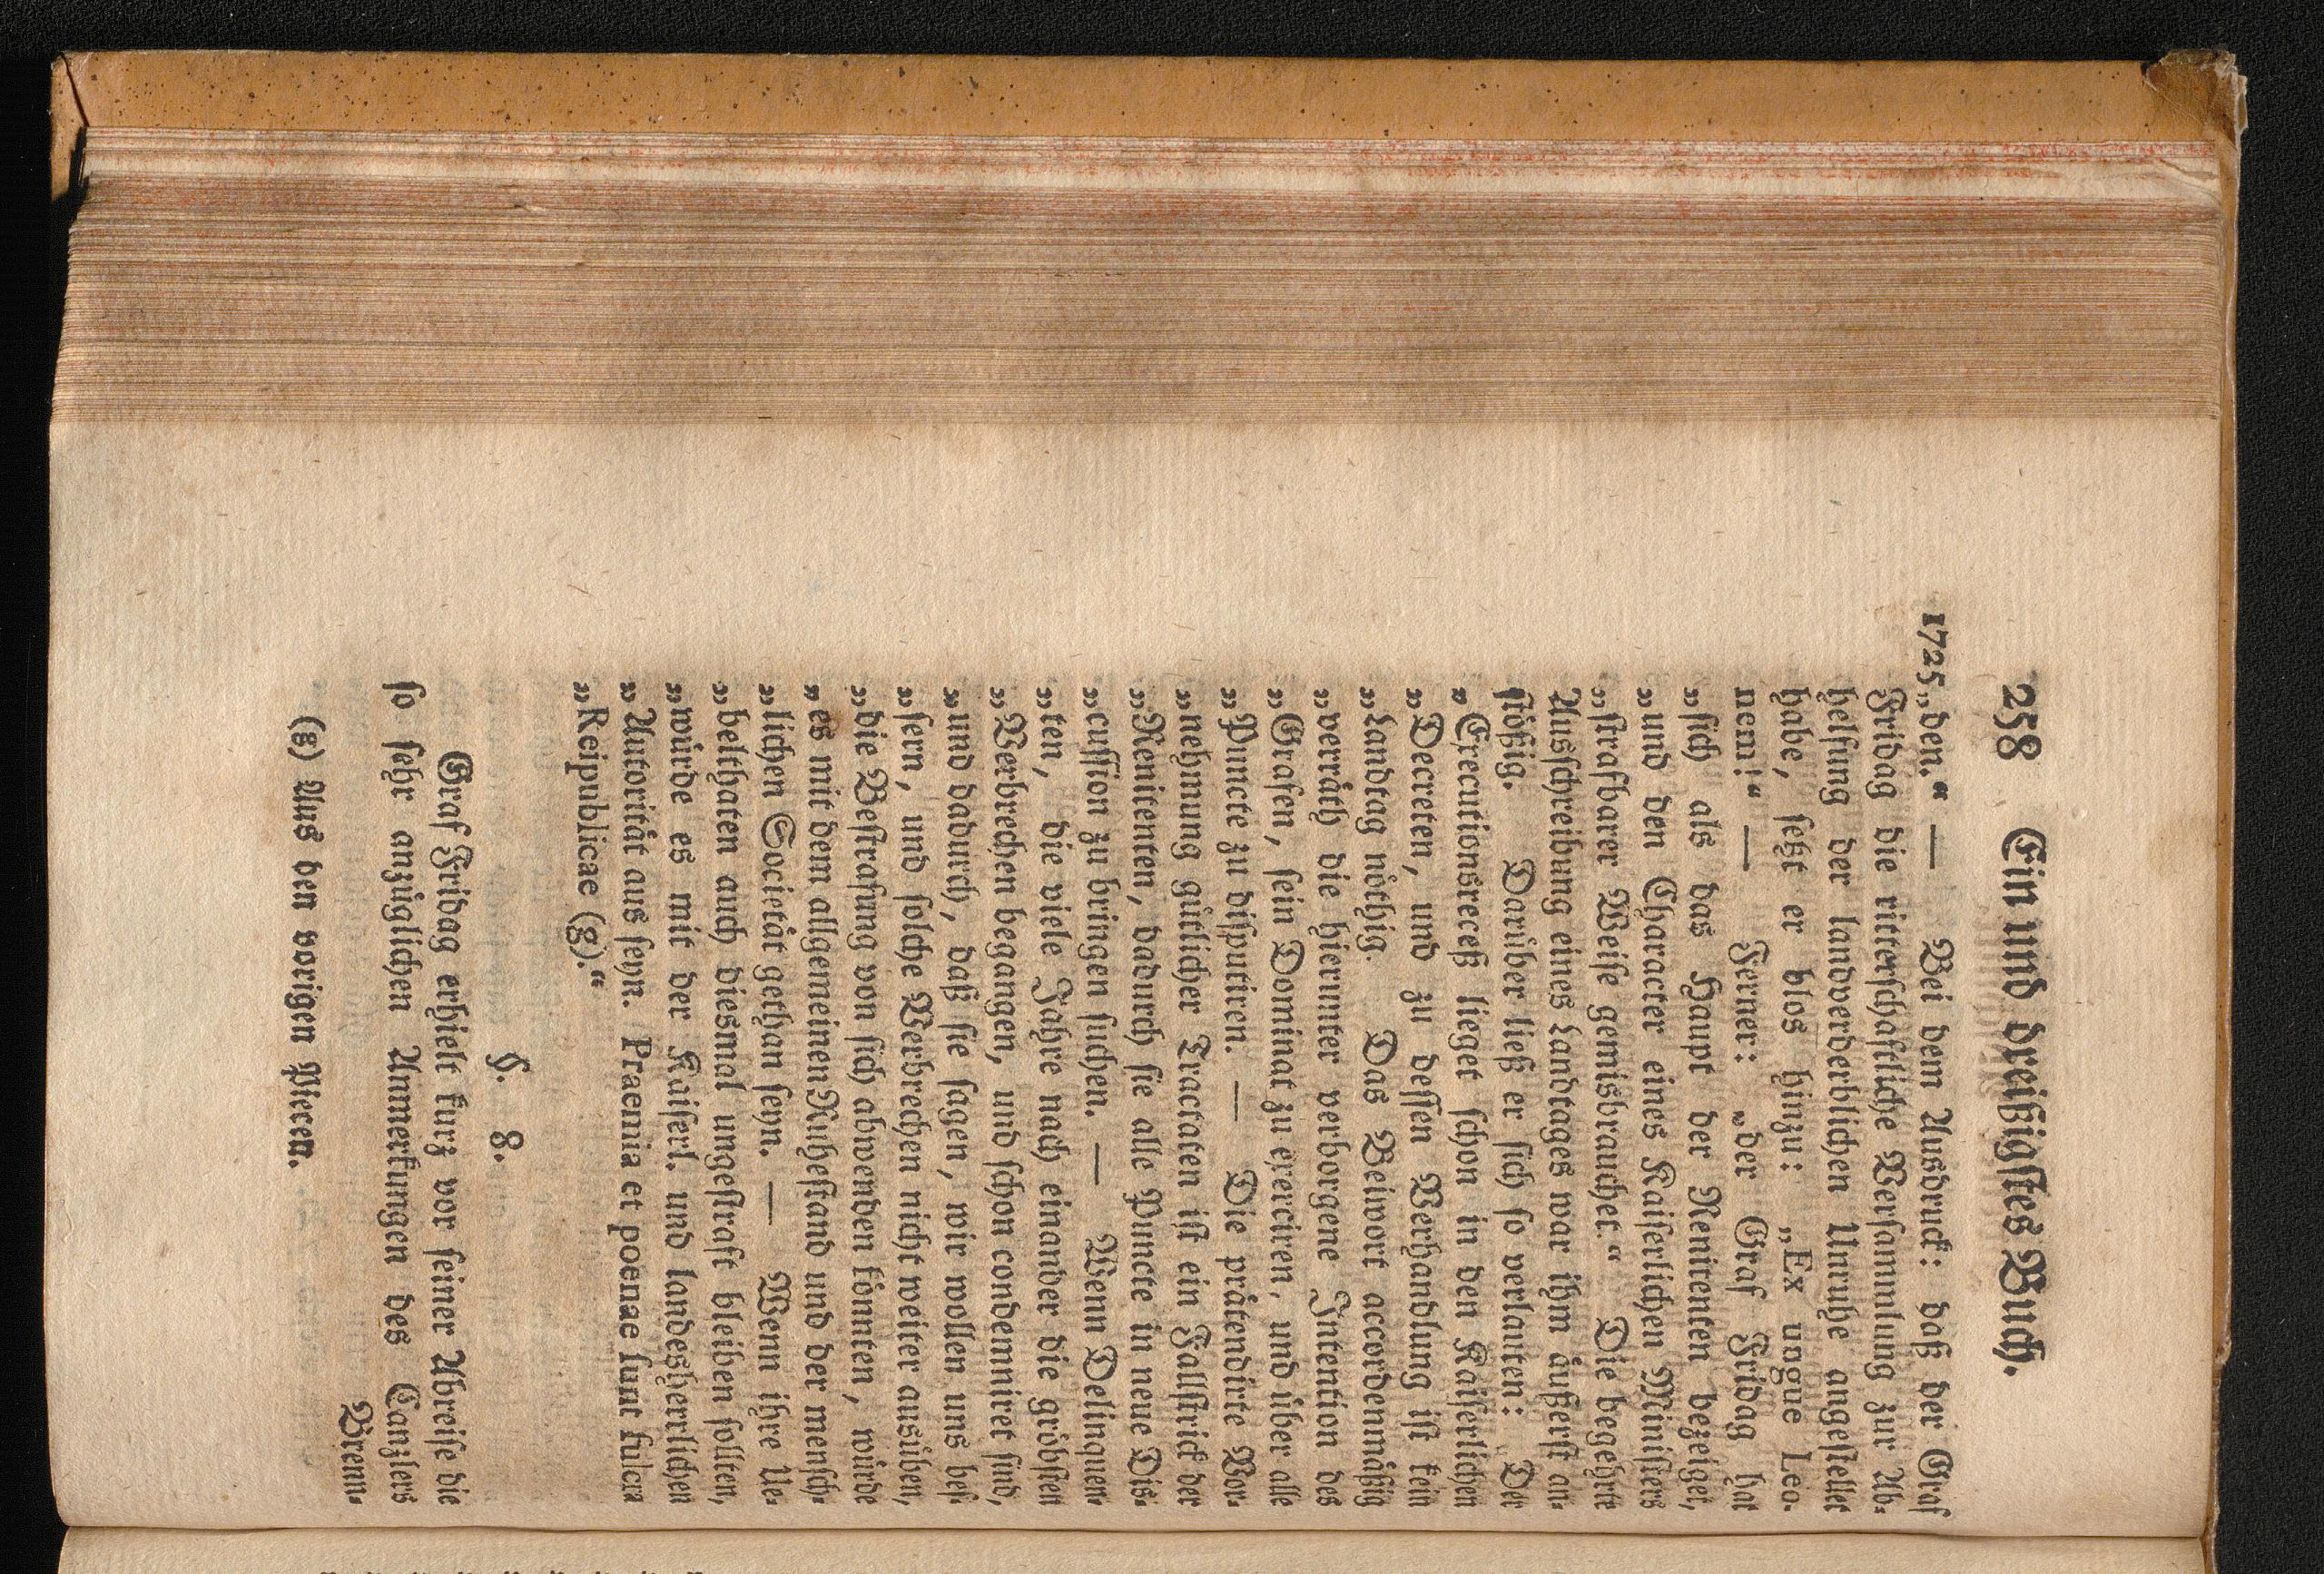 258 Ein und dreißigstes Buch.
1725 „den.“ — Bei dem Ausdruck: daß der Graf
Fridag die ritterschaftliche Versammlung zur Ab-
helfung der landverderblichen Unruhe angestellet
habe, sezt er blos hinzu: „Ex ungue Leo-
nem!“ — Ferner: „der Graf Fridag hat
„sich als das Haupt der Renitenten bezeiget,
„und den Character eines Kaiserlichen Ministers
„strafbarer Weise gemisbrauchet.“ Die begehrte
Ausschreibung eines Landtages war ihm äußerst an-
stößig. Darüber ließ er sich so verlauten: „Der
„Executionsreceß lieget schon in den Kaiserlichen
„Decreten, und zu dessen Verhandlung ist kein
„Landtag nöthig. Das Beiwort accordenmäßig
„verräth die hierunter verborgene Intention des
„Grafen, sein Dominat zu exerciren, und über alle
„Puncte zu disputiren. — Die prätendirte Vor-
„nehmung gütlicher Tractaten ist ein Fallstrick der
„Renitenten, dadurch sie alle Puncte in neue Dis-
„cussion zu bringen suchen. — Wenn Delinquen-
„ten, die viele Jahre nach einander die gröbsten
„Verbrechen begangen, und schon condemniret sind,
„und dadurch, daß sie sagen, wir wollen uns bes-
„sern, und solche Verbrechen nicht weiter ausüben,
„die Bestrafung von sich abwenden könnten, würde
„es mit dem allgemeinen Ruhestand und der mensch-
„lichen Societät gethan seyn. — Wenn ihre Ue-
„belthaten auch diesmal ungestraft bleiben sollten,
„würde es mit der Kaiserl. und landesherrlichen
„Autorität aus seyn. Praemia et poenae sunt fulcra
„Reipublicae (g).“
§. 8.
Graf Fridag erhielt kurz vor seiner Abreise die
so sehr anzüglichen Anmerkungen des Canzlers
Brenn-
(g) Aus den vorigen Piecen.